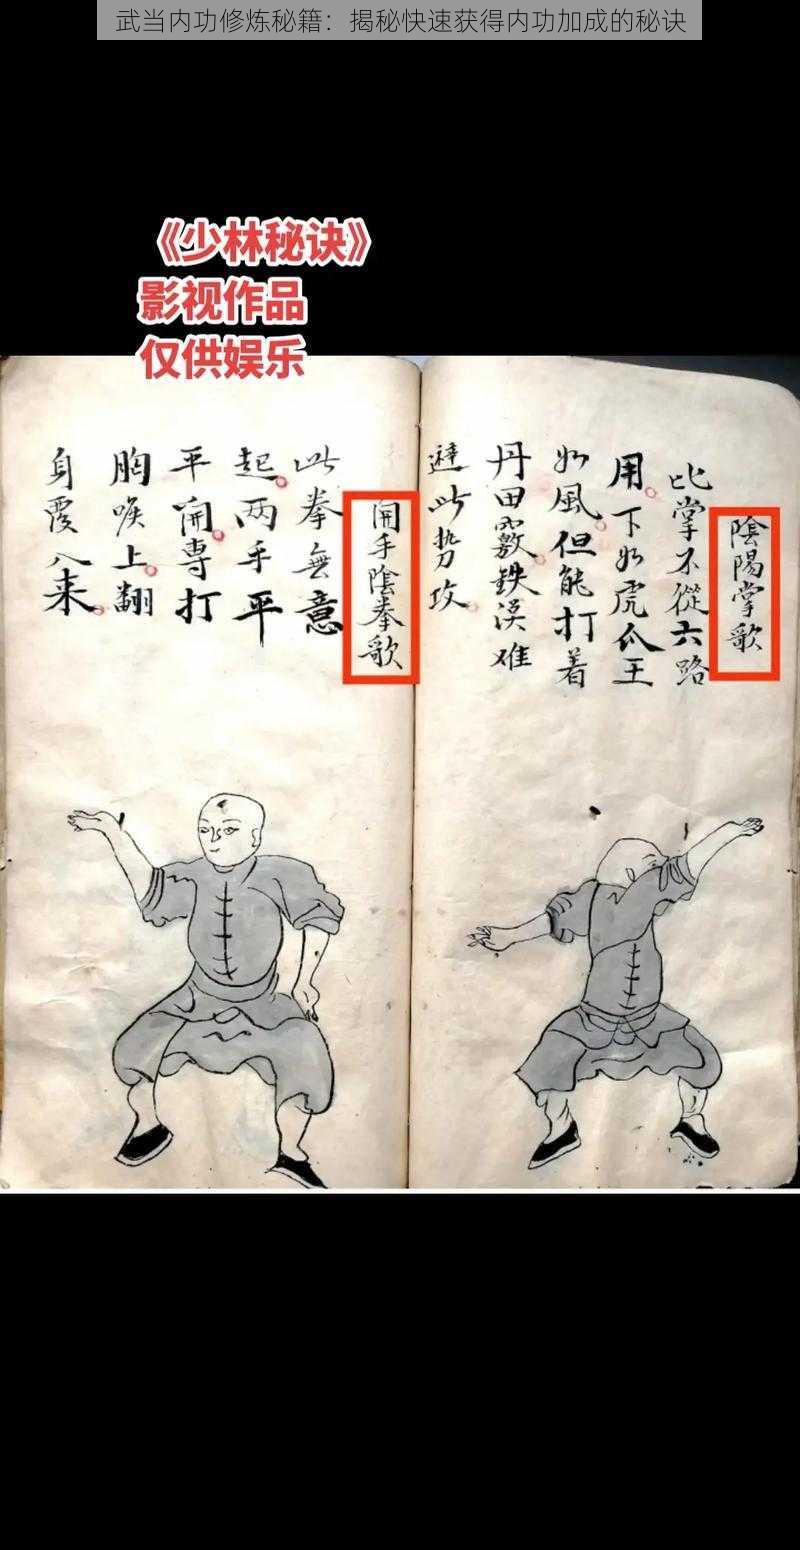 武当内功修炼秘籍：揭秘快速获得内功加成的秘诀
《少林秘诀》
影视作品
仅供娱乐
陰陽掌歌
此掌不從六路
用下如虎爪王
如風但能打着
丹田竅鉄漢难
避此势攻
開手陰拳歌
此拳無意
起两手平
平開専打
胸喉上翻
身覆入来